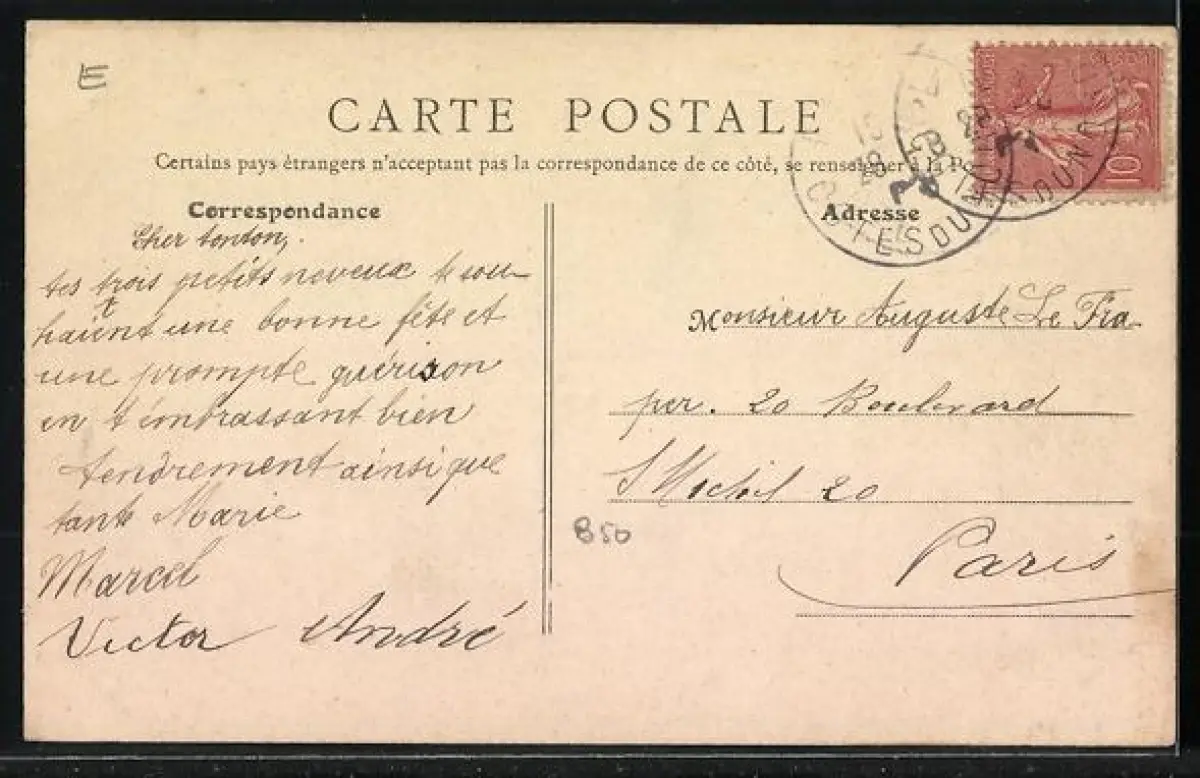 E
CARTE POSTALE
Certains pays étrangers n'acceptant pas la correspondance de ce côté, se renseigner à la Po
Correspondance
Cher tonton,
tes trois petits neveux te sou-
haitent une bonne fête et
une prompte guérison
en t'embrassant bien
tendrement ainsi que
tante Marie
Marcel
Victor André
Adresse
Monsieur Auguste Le Fra
per. 20 Boulevard
St Michel 20
Paris
B50
10
COTES DU N
COTES DU N